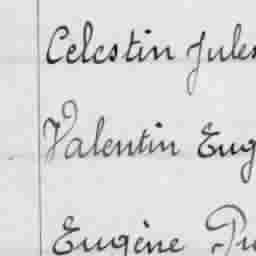 Celestin Jules
Valentin Eug
Eugène